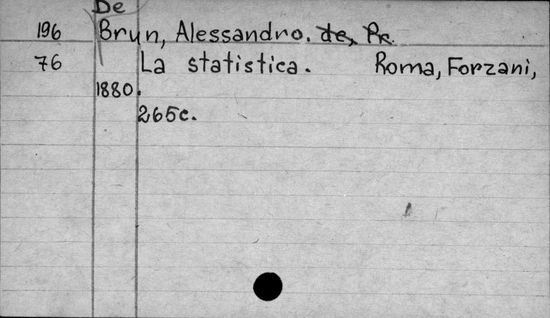 De
196 Brun, Alessandro. de, Pr.
76 La statistica. Roma, Forzani,
1880.
265c.